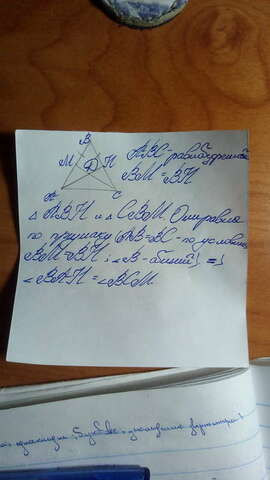 B
M D N
A
C
ABC - равнобедренный
BM = BN
△ ABN и △ CBM. Они равны
по признаку (AB = BC - по условию
BM = BN ; ∠B - общий) =>
∠BAN = ∠BCM.